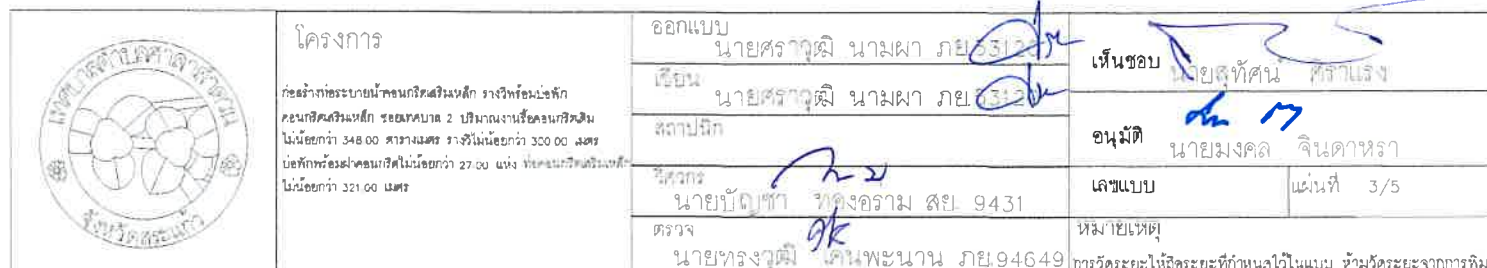 เทศบาลตำบลศาลาลำดวน
จังหวัดสระแก้ว
โครงการ
ก่อสร้างท่อระบายน้ำคอนกรีตเสริมเหล็ก รางวีพร้อมบ่อพัก
คอนกรีตเสริมเหล็ก ซอยเทศบาล 2 ปริมาณงานรื้อคอนกรีตเดิม
ไม่น้อยกว่า 348.00 ตารางเมตร รางวีไม่น้อยกว่า 300.00 เมตร
บ่อพักพร้อมฝาคอนกรีตไม่น้อยกว่า 27.00 แห่ง ท่อคอนกรีตเสริมเหล็ก
ไม่น้อยกว่า 321.00 เมตร
ออกแบบ
นายศราวุฒิ นามผา ภย.
เขียน
นายศราวุฒิ นามผา ภย.
สถาปนิก
วิศวกร
นายบัญชา ทองอราม สย. 9431
ตรวจ
นายทรงวุฒิ เคนพะนาน ภย.94649
เห็นชอบ นายสุทัศน์
อนุมัติ
นายมงคล จินดาหรา
เลขแบบ
แผ่นที่ 3/5
หมายเหตุ
การวัดระยะให้ถือระยะที่กำหนดไว้ในแบบ ห้ามวัดระยะจากการพิม